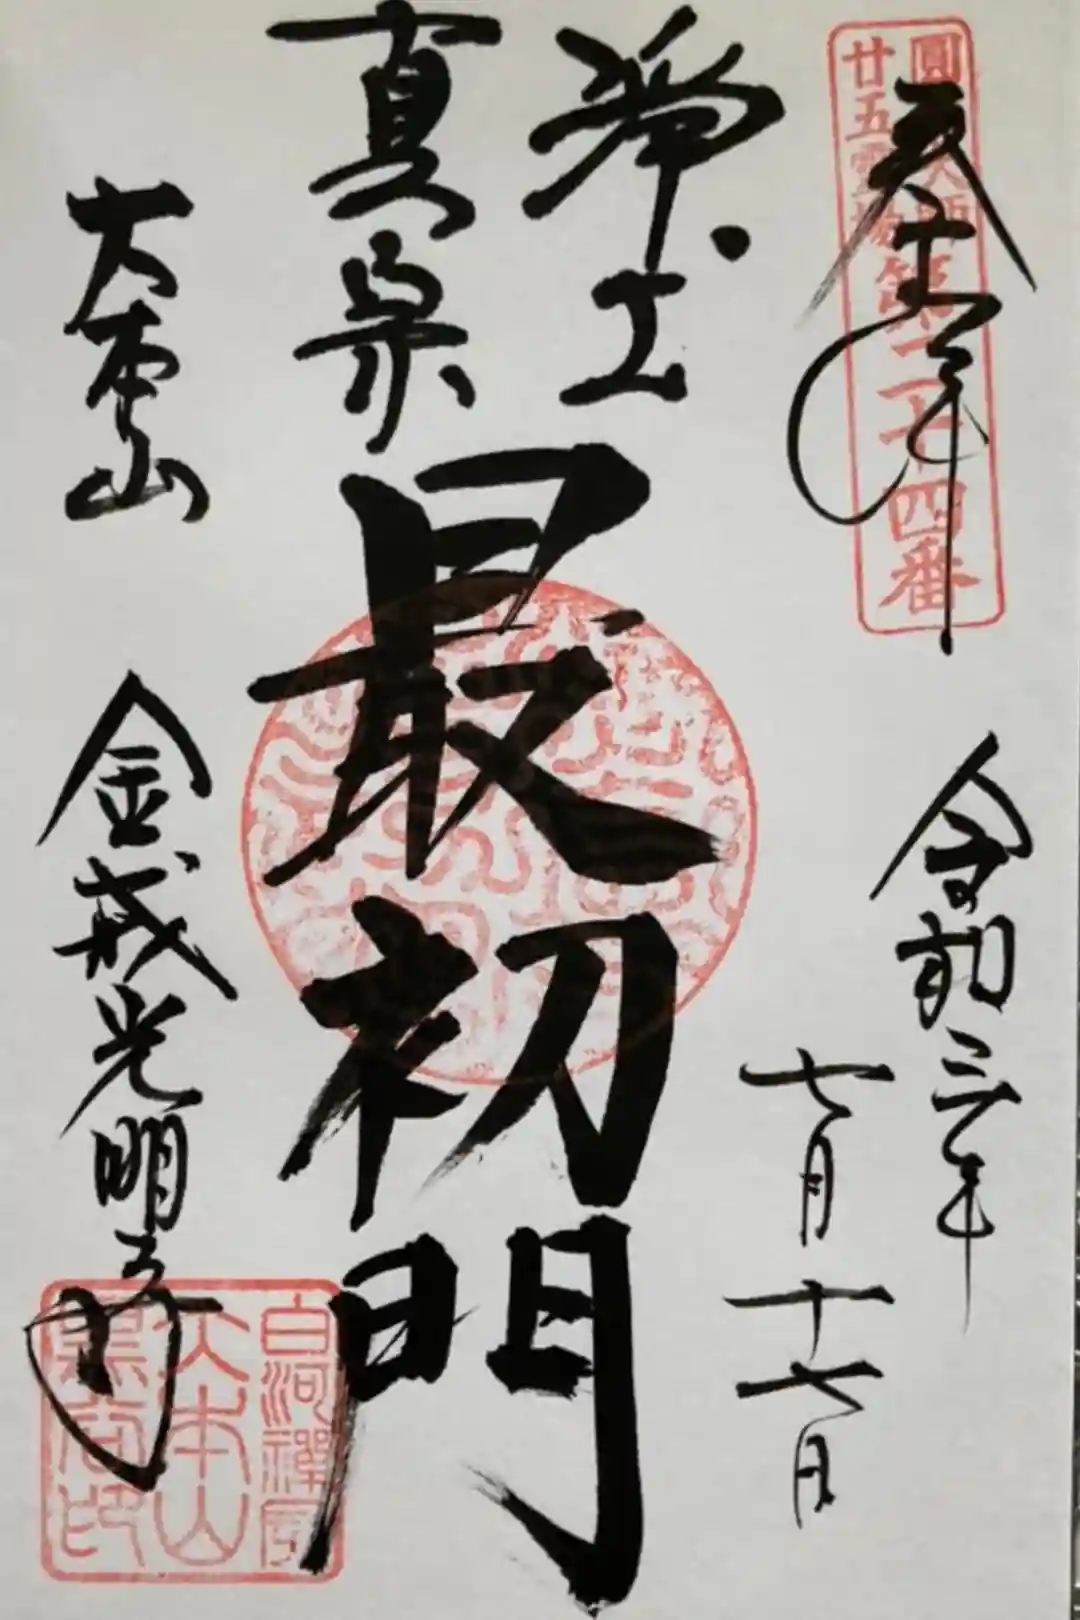 圓光大師
廿五霊場
第二十四番
奉拝
令和三年
七月十七日
浄土
真宗
最初門
大本山
金戒光明寺
白河禅房
大本山
黒谷印